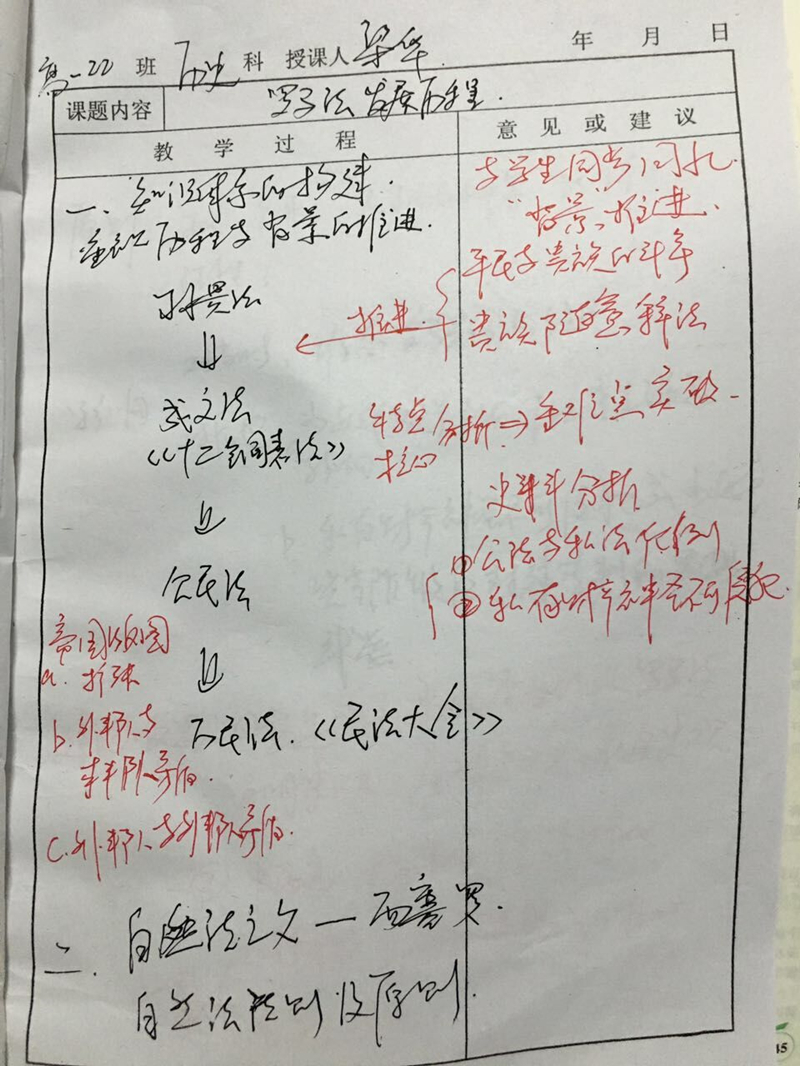 高一22 班 历史 科 授课人 梁华 年 月 日
课题内容 罗马法发展历程.
教学过程 意见或建议
一、知识体系的构建.
历程与背景的推进.
习惯法
⇓
成文法
《十二铜表法》
⇓
公民法
⇓
万民法.《民法大全》
与学生同步
"背景"推进.
平民与贵族的斗争
贵族随意释法
← 推进
特点 分析⇒重难点突破.
核心
史料分析
①公法与私法化例
②私有财产神圣不可侵犯.
帝国版图
a. 扩张
b. 外邦人与
矛盾.
c. 外邦人与外邦人矛盾.
二. 自然法之父—西塞罗.
自然法法则及原则.
45